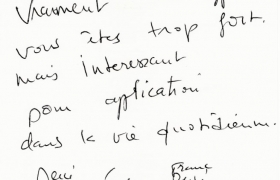 Vraiment
vous êtes trop fort.
mais interessant
pour application
dans la vie quotidienne.